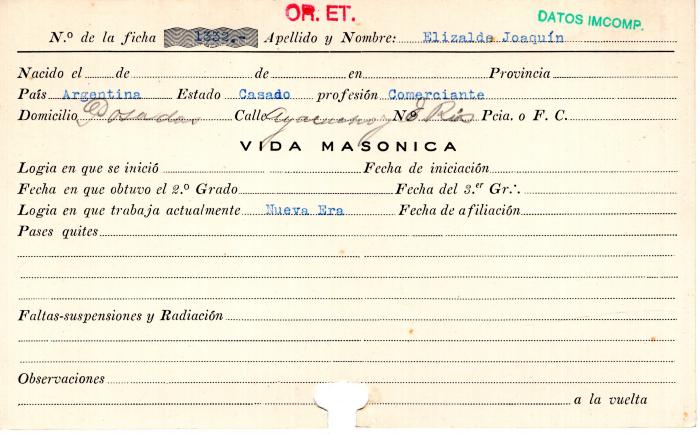 OR. ET.
DATOS IMCOMP.
N.º de la ficha 1332.- Apellido y Nombre: Elizalde Joaquín
Nacido el de de en Provincia
País Argentina Estado Casado profesión Comerciante
Domicilio Posadas Calle Ayacucho y E. Rios Nº Pcia. o F. C.
VIDA MASONICA
Logia en que se inició Fecha de iniciación
Fecha en que obtuvo el 2.º Grado Fecha del 3.er Gr∴
Logia en que trabaja actualmente Nueva Era Fecha de afiliación
Pases quites
Faltas-suspensiones y Radiación
Observaciones
a la vuelta